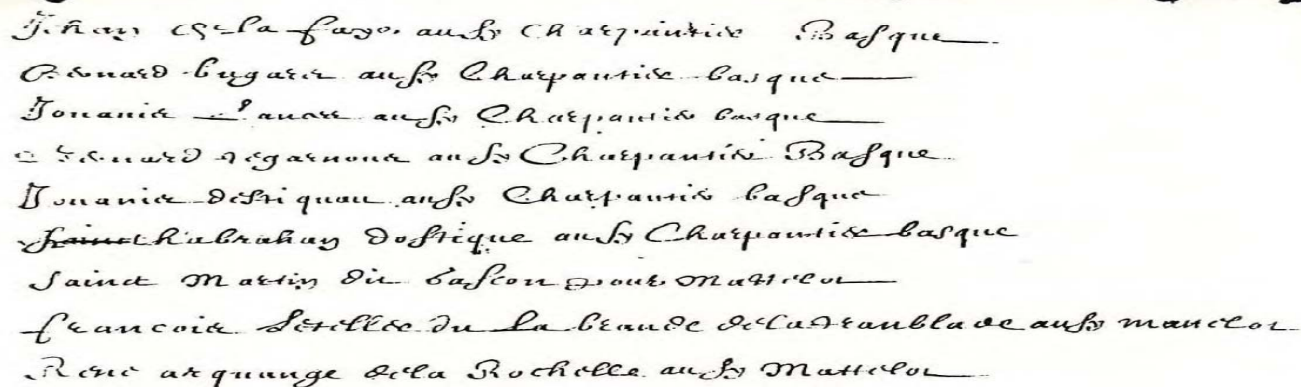 Jehan de la fargo. aussy Charpintier Basque
Bernard bugarer aussy Charpantier basque
Jouanis aussy Charpantier basque
Bernard aussy Charpantier Basque
Jouanis destiquau aussy Charpantier basque
habrahan dostique aussy Charpantier basque
Sainct Martin dit bascon pour Mattelot
francois dit la brande dela tranblade aussy matelot
Rene arquange dela Rochelle aussy Mattelot